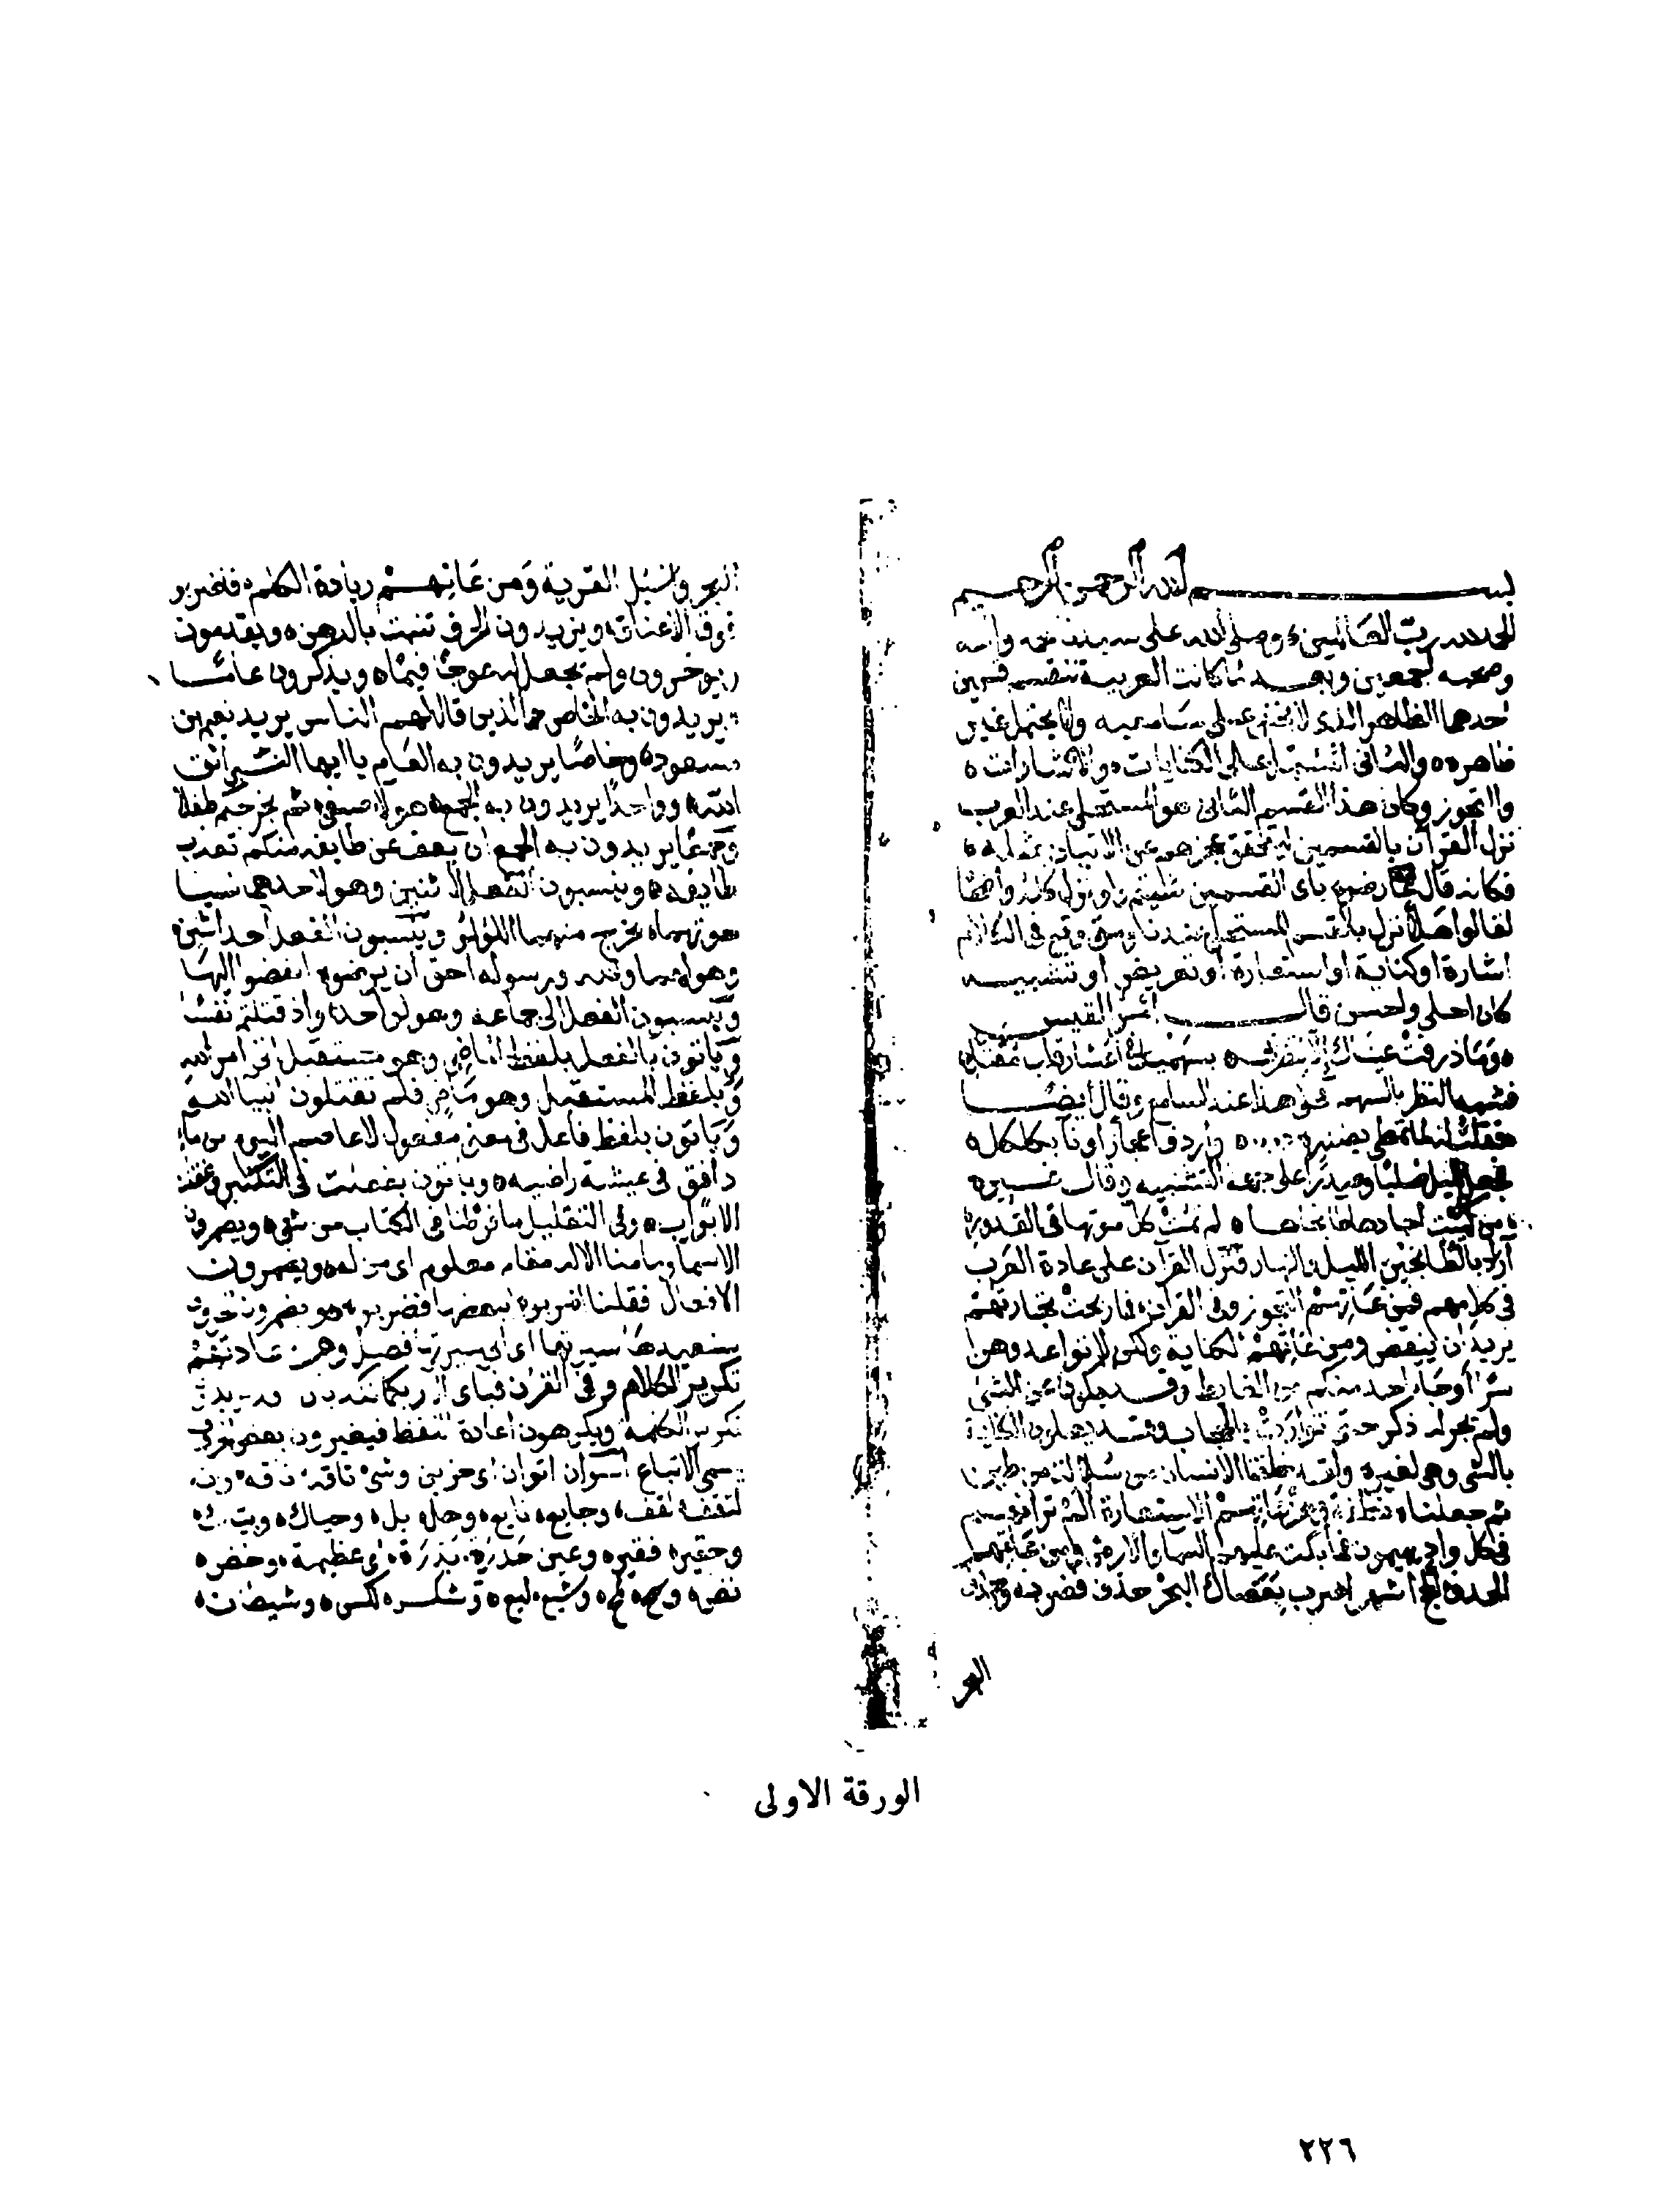 بسم الله الرحمن الرحيم
الحمد لله رب العالمين وصلى الله على سيدنا محمد وآله
وصحبه اجمعين وبعد لما كانت العربية تنقسم قسمين
احدهما الظاهر الذى لا يخفى على سامعيه ولا يحتمل غير
ظاهره والثانى المشتمل على الكنايات والاشارات
والتجوز وكان هذا القسم الثانى هو المستحلى عند العرب
نزل القرآن بالقسمين ليتحقق عجزهم عن الاتيان بمثله
فكانه قال عارضوه باى القسمين شئتم ولو نزل كله واضحا
لقالوا هلا نزل بالقسم المستحلى عندنا ومتى وقع فى الكلام
اشارة او كناية او استعارة او تعريض او تشبيه
كان احلى واحسن قال امرؤ القيس
وما ذرفت عيناك الا لتضربى بسهميك فى اعشار قلب مقتل
فشبه النظر بالسهم هذا عند السامع وقال ايضا
فقلت له لما تمطى واردف اعجازا وناء بكلكل
فجعل لليل صلبا وصدرا على جهة التشبيه وقال غيره
من كميت اجادها طابخاها لم تمت كل موتها فى القدور
اراد بالطابخين الليل والنهار فنزل القرآن على عادة العرب
فى كلامهم فمن عاداتهم التجوز وفى القرآن فما ربحت تجارتهم
يريد ان ينقض ومن عاداتهم الكناية ولكن لا تواعدوهن
سرا او جاء احد منكم من الغائط وقد يكنون عن الشئ
ولم يجر له ذكر حتى توارت بالحجاب وقد يصلون الكناية
بالشئ وهى لغيره ولقد خلقنا الانسان من سلالة من طين
ثم جعلناه نطفة ومن عاداتهم الاستعارة الم تر انهم
فى كل واد يهيمون فما بكت عليهم السماء والارض ومن عاداتهم
الحذف الحج اشهر اضرب بعصاك البحر حذف فضربه
البحر
البحر واسئل القرية ومن عاداتهم زيادة الكلم فاضربوا
فوق الاعناق ويزيدون الحرف تنبت بالدهن ويقدمون
ويوخرون ولم يجعل له عوجا قيما ويذكرون عاما
يريدون به الخاص الذين قال لهم الناس يريد نعيم بن
مسعود وخاصا يريدون به العام يا ايها النبى اتق
الله وواحدا يريدون به الجمع هولا ضيفى ثم يخرجكم طفلا
وجمعا يريدون به ان يعف عن طايفة منكم تعذب
طايفة وينسبون الفعل الى اثنين وهو لاحدهما نسيا
حوتهما يخرج منهما اللولو وينسبون الفعل لاحد اثنين
وهو لهما والله ورسوله احق ان يرضوه انفضوا اليها
وينسبون الفعل الى جماعة وهو لواحد واذ قتلتم نفسا
وياتون بالفعل بلفظ الماضى وهو مستقبل اتى امر الله
وبلفظ المستقبل وهو ماض فلم تقتلون انبيا الله
وياتون بلفظ فاعل فى معنى مفعول لا عاصم اليوم من ماء
دافق فى عيشة راضية وياتون فى التكثير وغلقت
الابواب وفى التقليل ما فرطنا فى الكتاب من شىء ويضمرون
الاسما وما منا الا له مقام معلوم اى من له ويضمرون
الافعال فقلنا اضربوه ببعضها فضربوه ويضمرون الحروف
سنعيدها سيرتها اى الى سيرتها فصل ومن عادتهم
تكرير الكلام وفى القرآن فباى آلاء ربكما تكذبان وقد
تكرير الكلمة ويكرهون اعادة اللفظ فيغيرون بعض الحروف
الاتباع اسوان اتوان اى حزين وشئ تافه نافه وانه
لثقف لقف وجايع نايع وحل وبل وحياك وبياك
وحقير نقير وعين حدرة بدرة اى عظيمة وخضر
نضر وشبع لبع وشكس لكس وشيطان
الورقة الاولى
٢٢٦